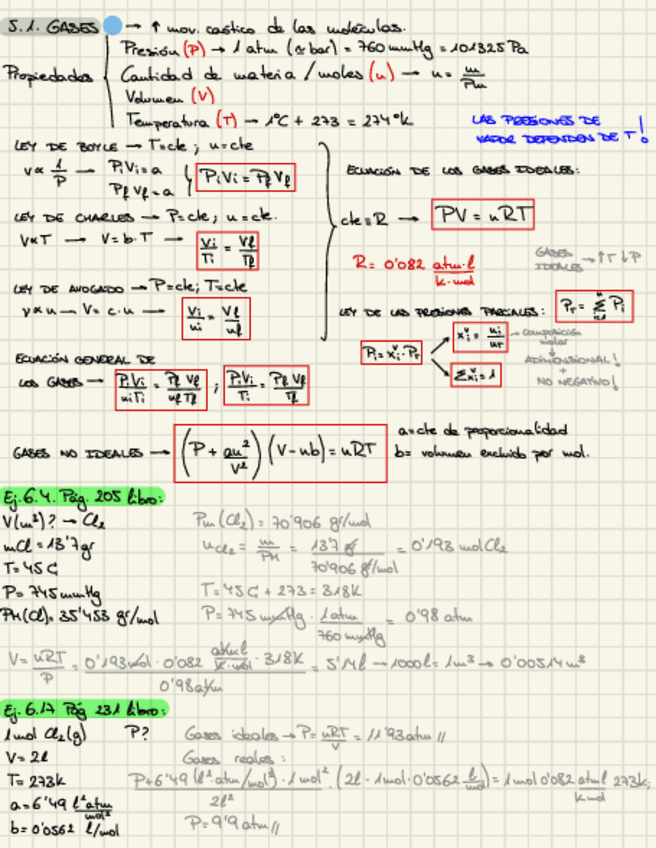 5.1. GASES → ↑ mov. caótico de las moléculas.
Propiedades
Presión (P) → 1 atm (≈ bar) = 760 mmHg = 101325 Pa
Cantidad de materia / moles (n) → n = m/Pm
Volumen (V)
Temperatura (T) → 1°C + 273 = 274°K
LAS PRESIONES DE
VAPOR DEPENDEN DE T!
LEY DE BOYLE → T=cte; n=cte
V ∝ 1/P → PiVi = a
PfVf = a
PiVi = PfVf
LEY DE CHARLES → P=cte; n=cte.
V∝T → V=b·T → Vi/Ti = Vf/Tf
LEY DE AVOGADO → P=cte; T=cte
V∝n → V= c·n → Vi/ni = Vf/nf
ECUACIÓN GENERAL DE
LOS GASES → PiVi/niTi = PfVf/nfTf ; PiVi/Ti = PfVf/Tf
ECUACIÓN DE LOS GASES IDEALES:
cte=R → PV = nRT
R = 0'082 atm·l/k·mol
GASES
IDEALES → ↑T ↓P
LEY DE LAS PRESIONES PARCIALES: PT = Σ Pi
Pi = xiv·PT
xiv = ni/nT → composición
molar
Σxiv = 1
ADIMENSIONAL!
+
NO NEGATIVO!
GASES NO IDEALES → (P + an²/V²) (V-nb) = nRT
a=cte de proporcionalidad
b= volumen excluido por mol.
Ej.6.4. Pág. 205 libro:
V(m³)? → Cl₂
mCl = 13'7gr
T= 45C
P= 745 mmHg
PM(Cl)= 35'453 gr/mol
Pm(Cl₂) = 70'906 gr/mol
nCl₂ = m/PM = 13'7 gr/70'906 gr/mol = 0'193 mol Cl₂
T= 45C + 273 = 318K
P= 745 mmHg · 1 atm/760 mmHg = 0'98 atm
V= nRT/P = 0'193mol · 0'082 atm·l/k·mol · 318K/0'98atm = 5'14l → 1000l = 1m³ → 0'00514 m³
Ej. 6.17 Pág 231 libro:
1mol Cl₂(g) P?
V= 2l
T= 273k
a= 6'49 l²atm/mol²
b= 0'0562 l/mol
Gases ideales → P= nRT/V = 11'93atm //
Gases reales:
P+6'49 (l²atm/mol²) · 1mol²/2l² · (2l - 1mol·0'0562 l/mol) = 1mol 0'082 atml/kmol 273k;
P= 9'9 atm //